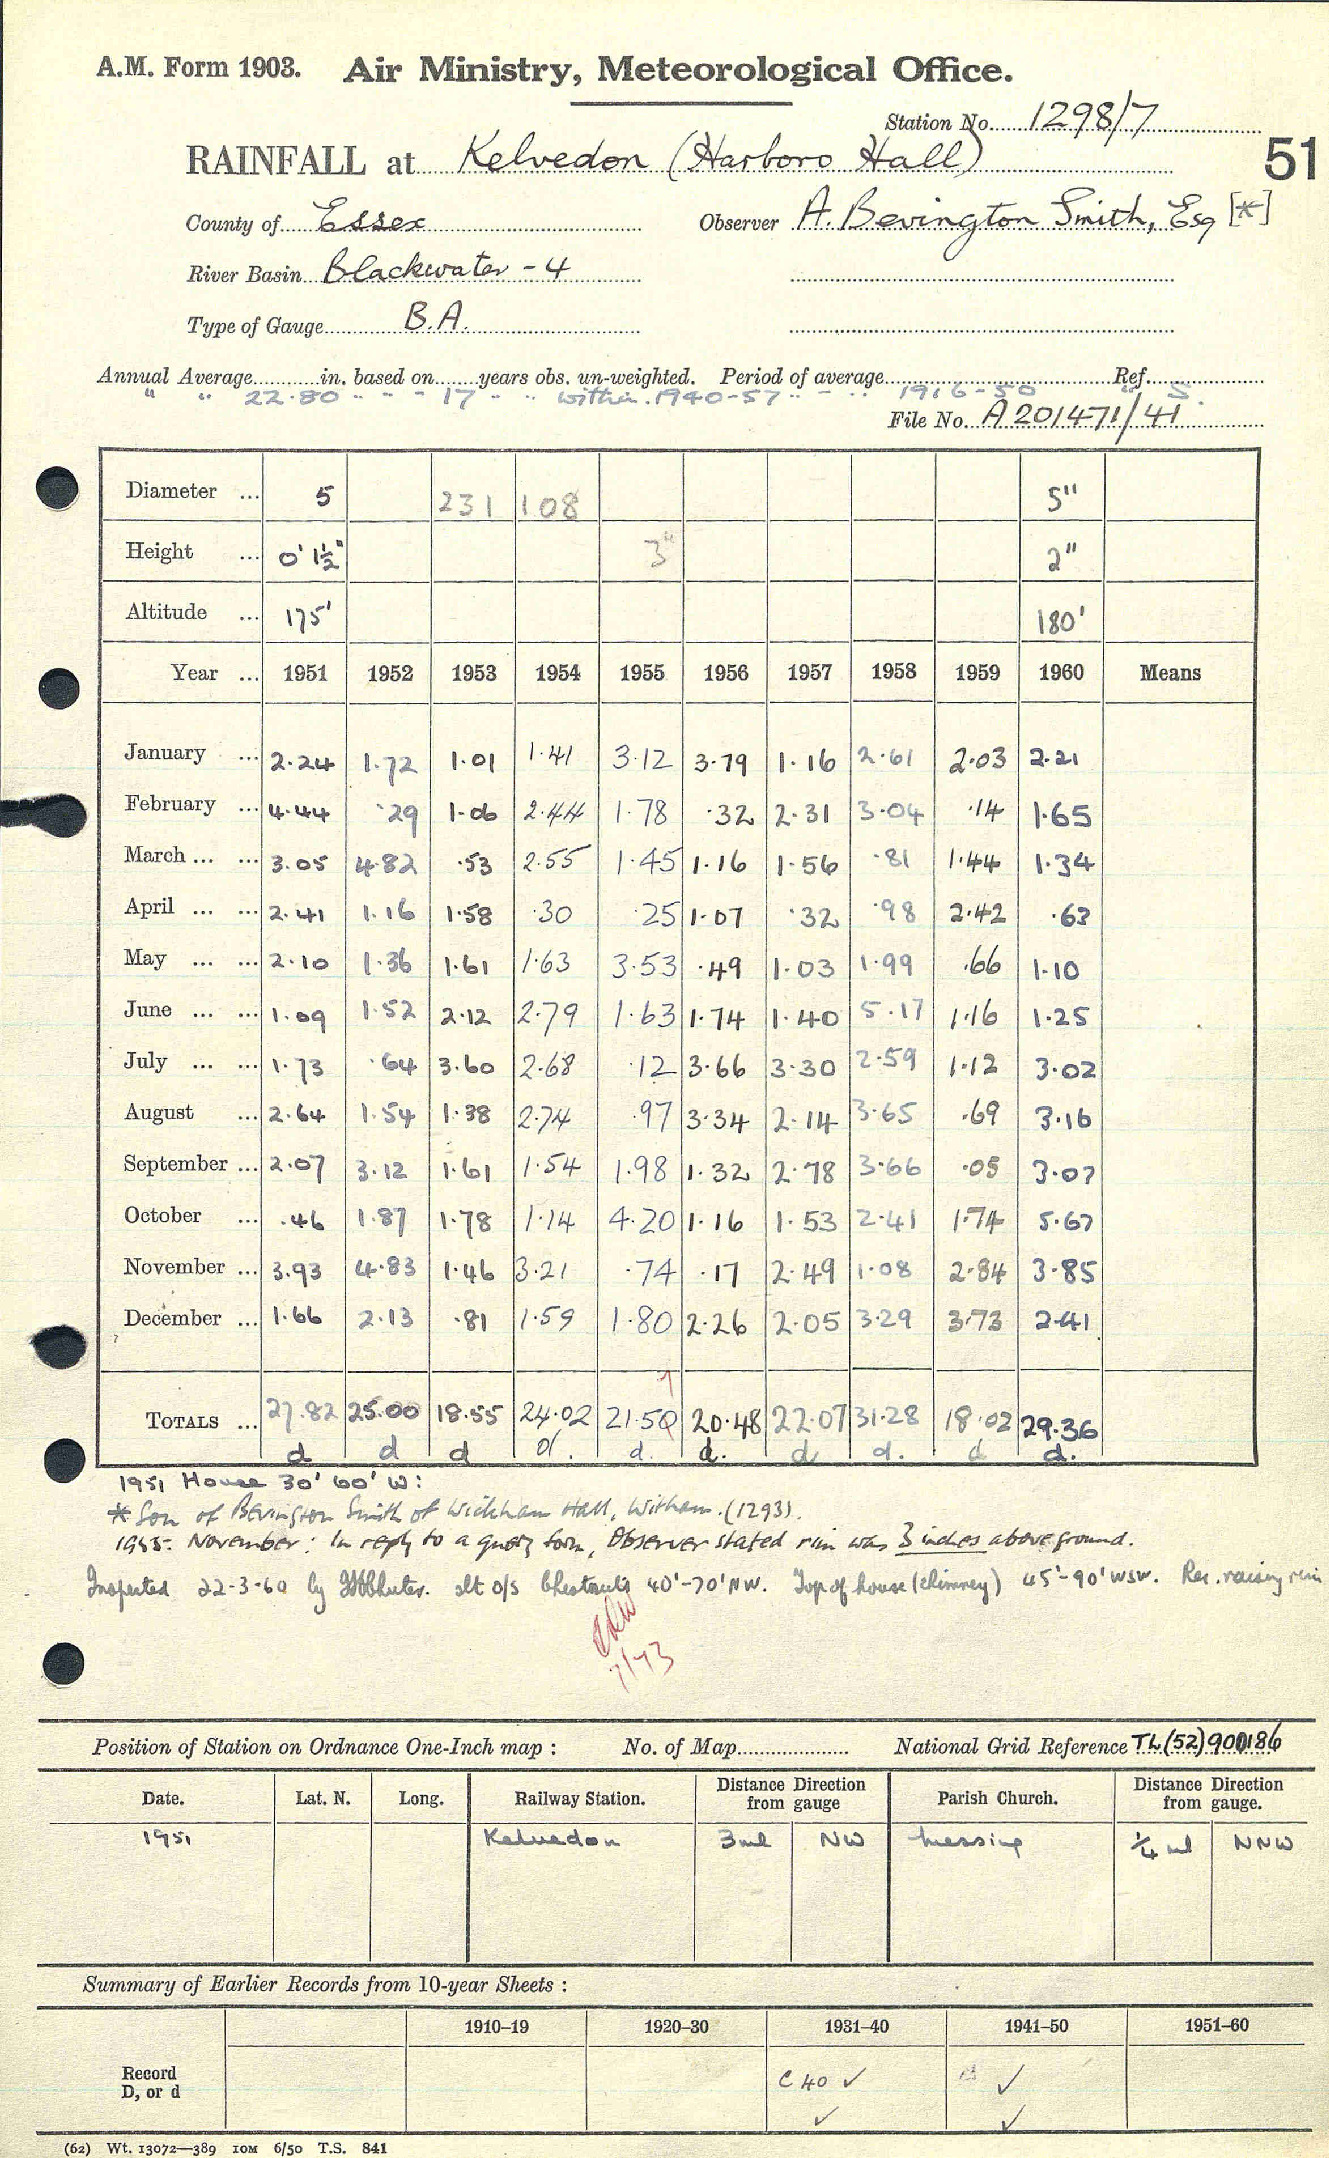 A.M. Form 1903. Air Ministry, Meteorological Office.
Station No. 1298/7
51
RAINFALL at Kelvedon (Harboro Hall)
County of Essex Observer A. Bevington Smith, Esq [*]
River Basin Blackwater - 4
Type of Gauge B.A.
Annual Average in. based on years obs. un-weighted. Period of average Ref.
" " 22.80 " - - 17 " " within 1940-57 " - " 1916-50 " S.
File No. A 201471/41
Diameter ... 5 231 108 5"
Height ... 0' 1½" 3" 2"
Altitude ... 175' 180'
Year ... 1951 1952 1953 1954 1955 1956 1957 1958 1959 1960 Means
January ... 2.24 1.72 1.01 1.41 3.12 3.79 1.16 2.61 2.03 2.21
February ... 4.44 .29 1.06 2.44 1.78 .32 2.31 3.04 .14 1.65
March ... ... 3.05 4.82 .53 2.55 1.45 1.16 1.56 .81 1.44 1.34
April ... ... 2.41 1.16 1.58 .30 .25 1.07 .32 .98 2.42 .63
May ... ... 2.10 1.36 1.61 1.63 3.53 .49 1.03 1.99 .66 1.10
June ... ... 1.09 1.52 2.12 2.79 1.63 1.74 1.40 5.17 1.16 1.25
July ... ... 1.73 .64 3.60 2.68 .12 3.66 3.30 2.59 1.12 3.02
August ... 2.64 1.54 1.38 2.74 .97 3.34 2.14 3.65 .69 3.16
September ... 2.07 3.12 1.61 1.54 1.98 1.32 2.78 3.66 .05 3.07
October ... .46 1.87 1.78 1.14 4.20 1.16 1.53 2.41 1.74 5.67
November ... 3.93 4.83 1.46 3.21 .74 .17 2.49 1.08 2.84 3.85
December ... 1.66 2.13 .81 1.59 1.80 2.26 2.05 3.29 3.73 2.41
7
TOTALS ... 27.82 25.00 18.55 24.02 21.50 20.48 22.07 31.28 18.02 29.36
d d d d. d. d. d d. d d.
1951 House 30' 60' W:
* Son of Bevington Smith of Wickham Hall, Witham. (1293).
1955. November: In reply to a query form, Observer stated rim was 3 inches above ground.
Inspected 22-3-60 by alt o/s Chestnuts 40'-70' NW. Top of house (chimney) 45'-90' WSW. Rec. raising rim
7/73
Position of Station on Ordnance One-Inch map : No. of Map National Grid Reference TL(52)900186
Date. Lat. N. Long. Railway Station. Distance Direction from gauge Parish Church. Distance Direction from gauge.
1951 Kelvedon 3ml NW Messing ¼ ml NNW
Summary of Earlier Records from 10-year Sheets :
1910–19 1920–30 1931–40 1941–50 1951–60
Record D, or d C 40 ✓ ✓
✓ ✓
(62) Wt. 13072—389 10M 6/50 T.S. 841